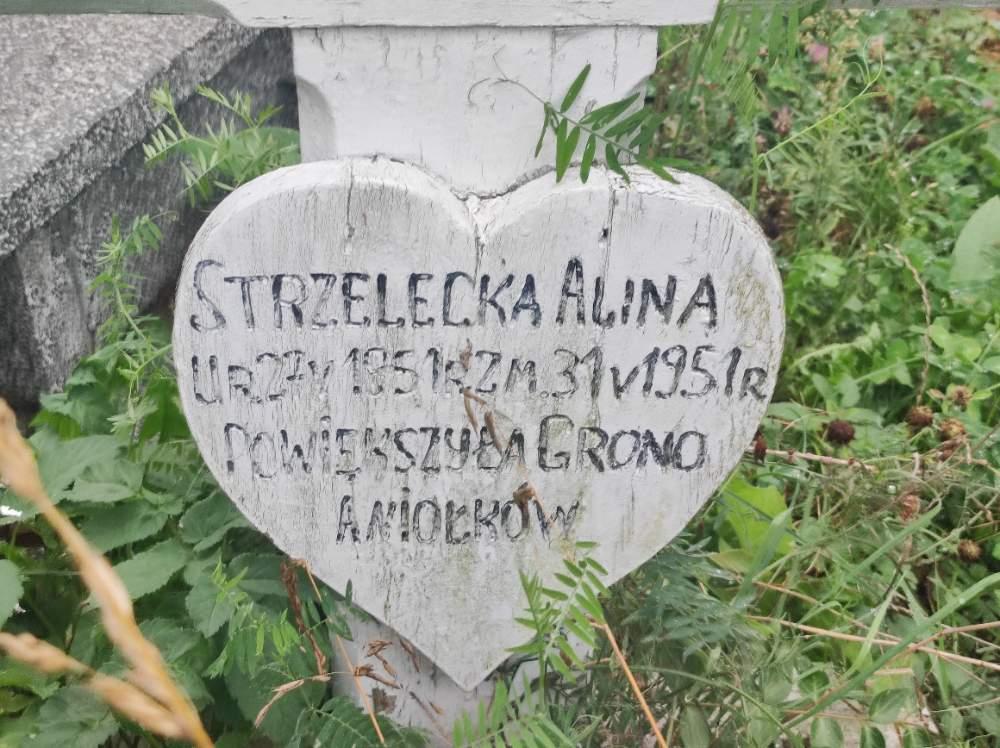 STRZELECKA ALINA
UR 27 V 1951R ZM. 31 V 1951R
POWIĘKSZYŁA GRONO
ANIOŁKÓW